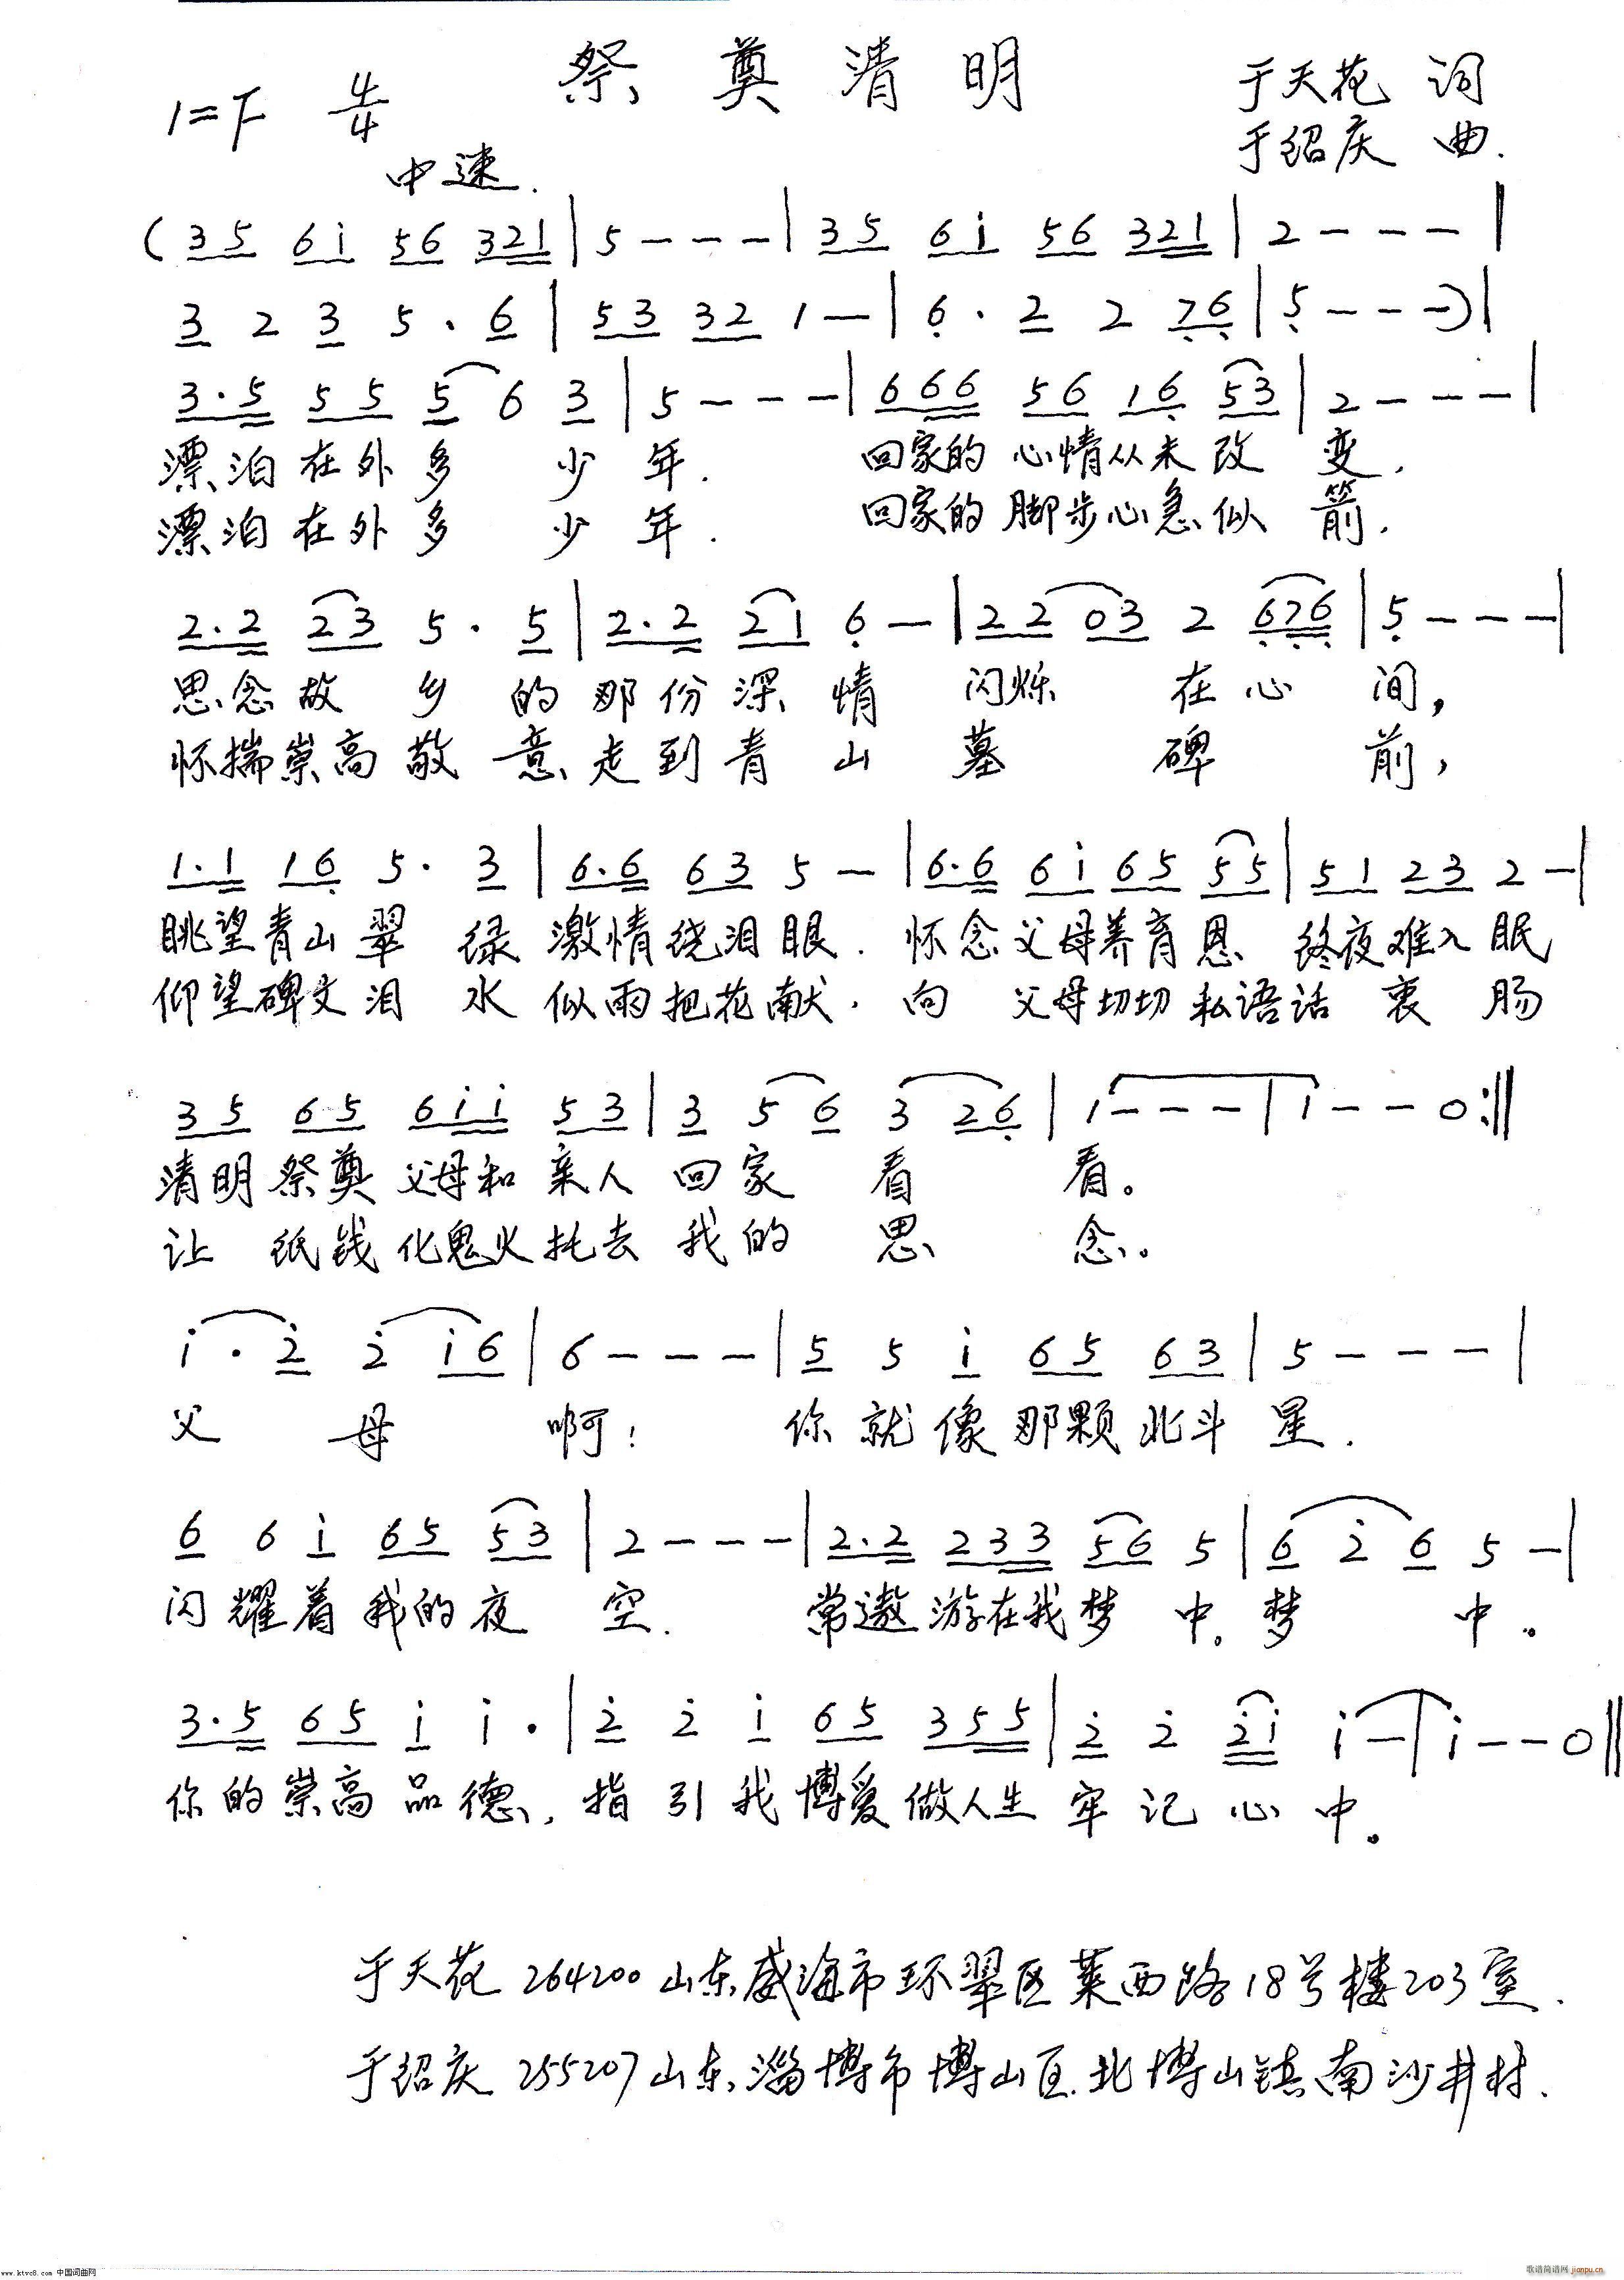 祭奠清明
1=F 4/4
于天花 词
于绍庆 曲.
中速.
(35 6i 56 321|5---|35 6i 56 321|2---|
3 2 3 5·6|53 32 1—|6·2 2 76|5---)|
3·5 55 5 6 3|5---|666 56 16 53|2---|
漂泊在外多 少 年. 回家的 心情从未 改 变,
漂泊在外多 少 年. 回家的 脚步心急似 箭.
2·2 23 5·5|2·2 21 6—|22 03 2 676|5---|
思念故 乡 的那份深 情 闪烁 在心 间,
怀揣崇高敬 意走到青 山 墓 碑 前,
1·1 16 5·3|6·6 63 5—|6·6 6i 65 55|51 23 2—|
眺望青山翠 绿 激情绕泪眼. 怀念父母养育恩 终夜难入眠
仰望碑文泪 水 似雨把花献. 向 父母切切私语话衷肠
35 65 6ii 53|3 5 6 3 26|i---|i--0:||
清明祭奠父母和亲人 回家 看 看。
让 纸钱化鬼火托去 我的 思 念。
i·2 2 i6|6---|5 5 i 65 63|5---|
父 母 啊! 你就像那颗北斗 星.
6 6 i 65 53|2---|2·2 233 56 5|6 2 6 5—|
闪耀着我的夜 空. 常遨游在我梦 中。梦 中。
3·5 65 i i·|2 2 i 65 355|2 2 2i i—|i--0||
你的崇高品德, 指引我博爱做人生 牢记心中。
于天花 264200 山东威海市环翠区莱西路18号楼203室.
于绍庆 255207 山东淄博市博山区北博山镇南沙井村.
www.ktvc8.com 中国词曲网
歌谱简谱网 jianpu.cn